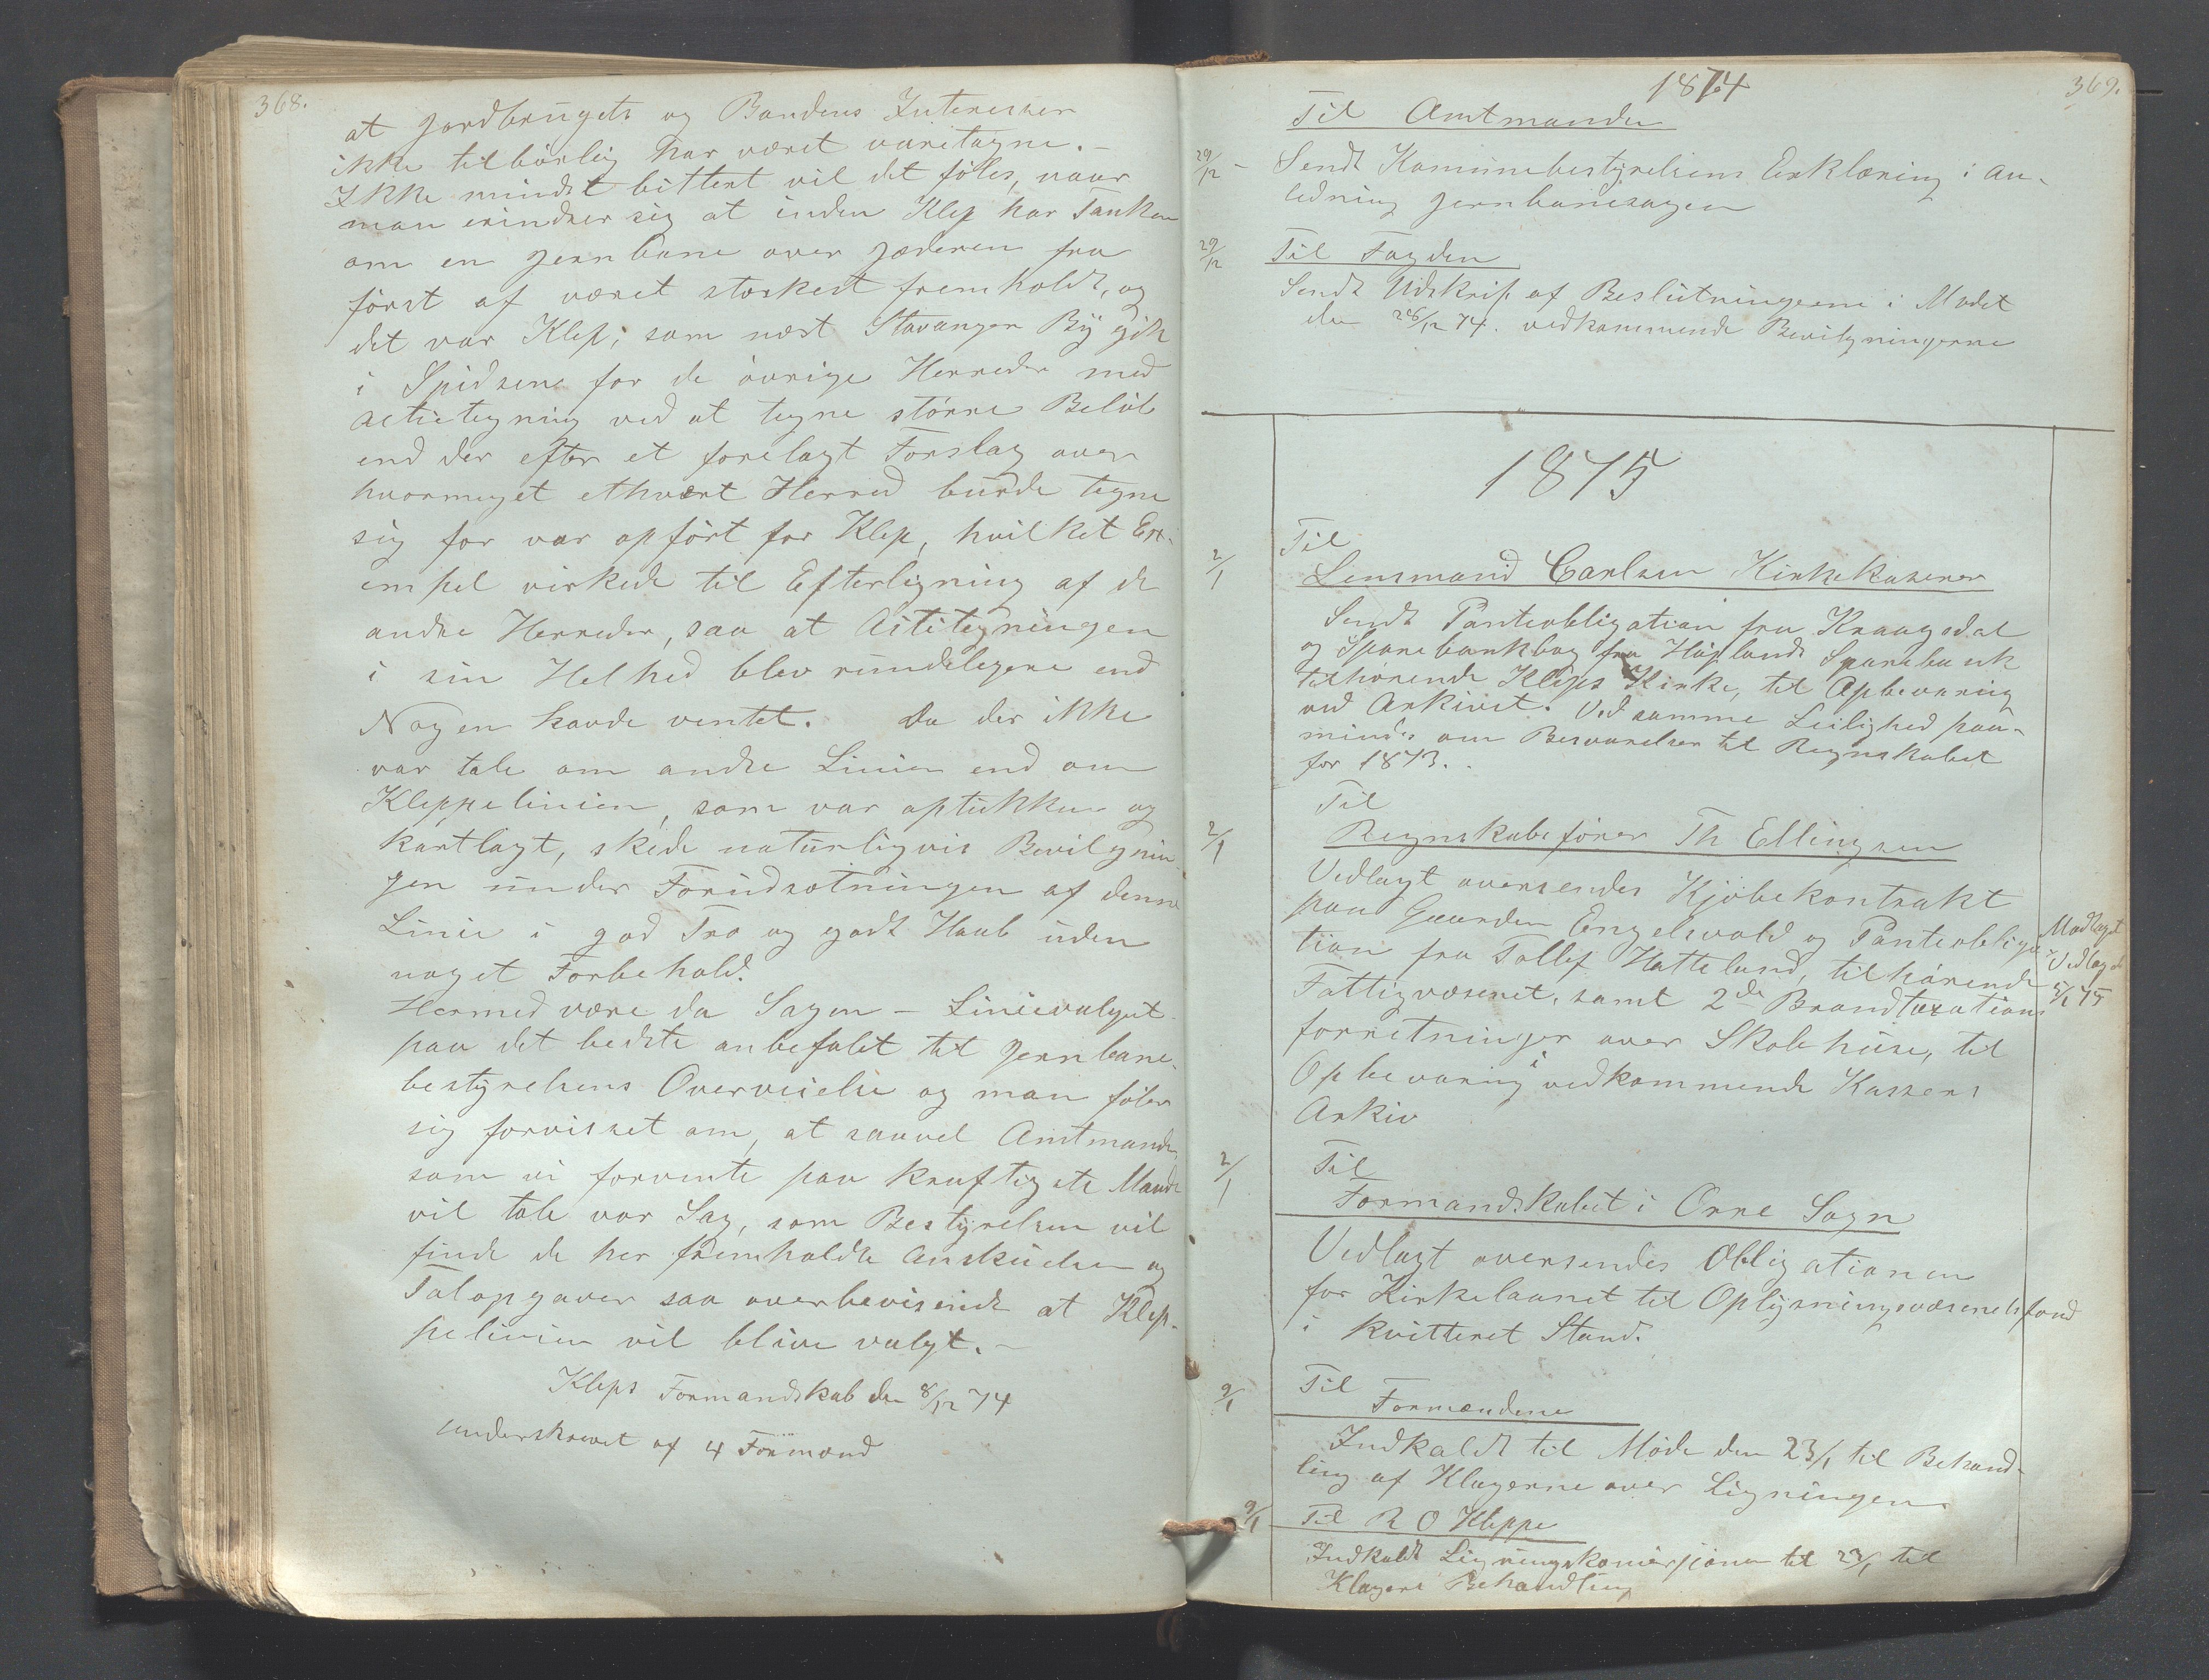 368.
at Jordbrugets og Bondens Interesser
ikke tilbørlig har været varetagne. –
Ikke mindst bittert vil det føles, naar
man erindrer sig at inden Klep har Tanken
om en Jernbane over Jæderen fra
først af været stærkest fremholdt, og
det var Klep, som næst Stavanger By gik
i Spidsene for de øvrige Herreder med
Actietegning ved at tegne større Beløb
end der efter et forelagt Forslag over
hvormeget ethvert Herred burde tegne
sig for var opført for Klep, hvilket Ex-
empel virkede til Efterligning af de
andre Herreder, saa at Actietegningen
i sin Helhed blev rundeligere end
Nogen havde ventet. Da der ikke
var tale om andre Linier end om
Kleppelinien, som var optukken og
kartlagt, skede naturligvis Bevilgnin
gen under Forudsætningen af denne
Linie i god Tro og godt Haab uden
noget Forbehold.
Hermed være da Sagen – Linievalget –
paa det bedste anbefalet til Jernbane-
bestyrelsens Overveielse og man føler
sig forvisset om, at saavel Amtmanden
som vi forvente paa kraftigste Maade
vil tale vor Sag, som Bestyrelsen vil
finde de her fremholdte Anskuelser og
Talopgaver saa overbevisende at Klep-
pelinien vil blive valgt. –
Kleps Formandskab den 8/12 74
underskrevet af 4 Formænd
1874
369.
Til Amtmanden
29/12 – Sendt Komunebestyrelsens Erklæring i An-
ledning Jernbanesagen
29/12 Til Fogden
Sendt Udskrift af Beslutningerne i Mødet
den 28/12 74. vedkommende Bevilgningerne
1875
Til
2/1 Lensmand Carlsen Kirkekaserer
Sendt Panteobligation fra Kraagedal
og Sparebankbog fra Højlands Sparebank
tilhørende Kleps Kirke, til Opbevaring
ved Arkivet. Ved samme Leilighed paa-
mindes om Besvarelser til Regnskabet
for 1873.
Til
2/1 Regnskabsfører Th Ellingsen
Vedlagt oversendes Kjøbekontrakt
paa Gaarden Engelsvold og Panteobliga-
tion fra Tollef Hatteland, tilhørende
Fattigvæsenet, samt 2de Brandtaxations
forretninger over Skolehuse, til
Opbevaring i vedkommende Kassers
Arkiv
Modtaget
Vedlagt
5/1 75
Til
2/1 Formandskabet i Orre Sogn
Vedlagt oversendes Obligationen
for Kirkelaanet til Oplysningsvæsenets fond
i kvitteret Stand.
Til
9/1 Formændene
Indkaldt til Møde den 23/1 til Behand-
ling af Klagerne over Ligningen.
9/1 Til R O Kleppe
Indkaldt Ligningskomissionen til 23/1 til
Klagers Behandling